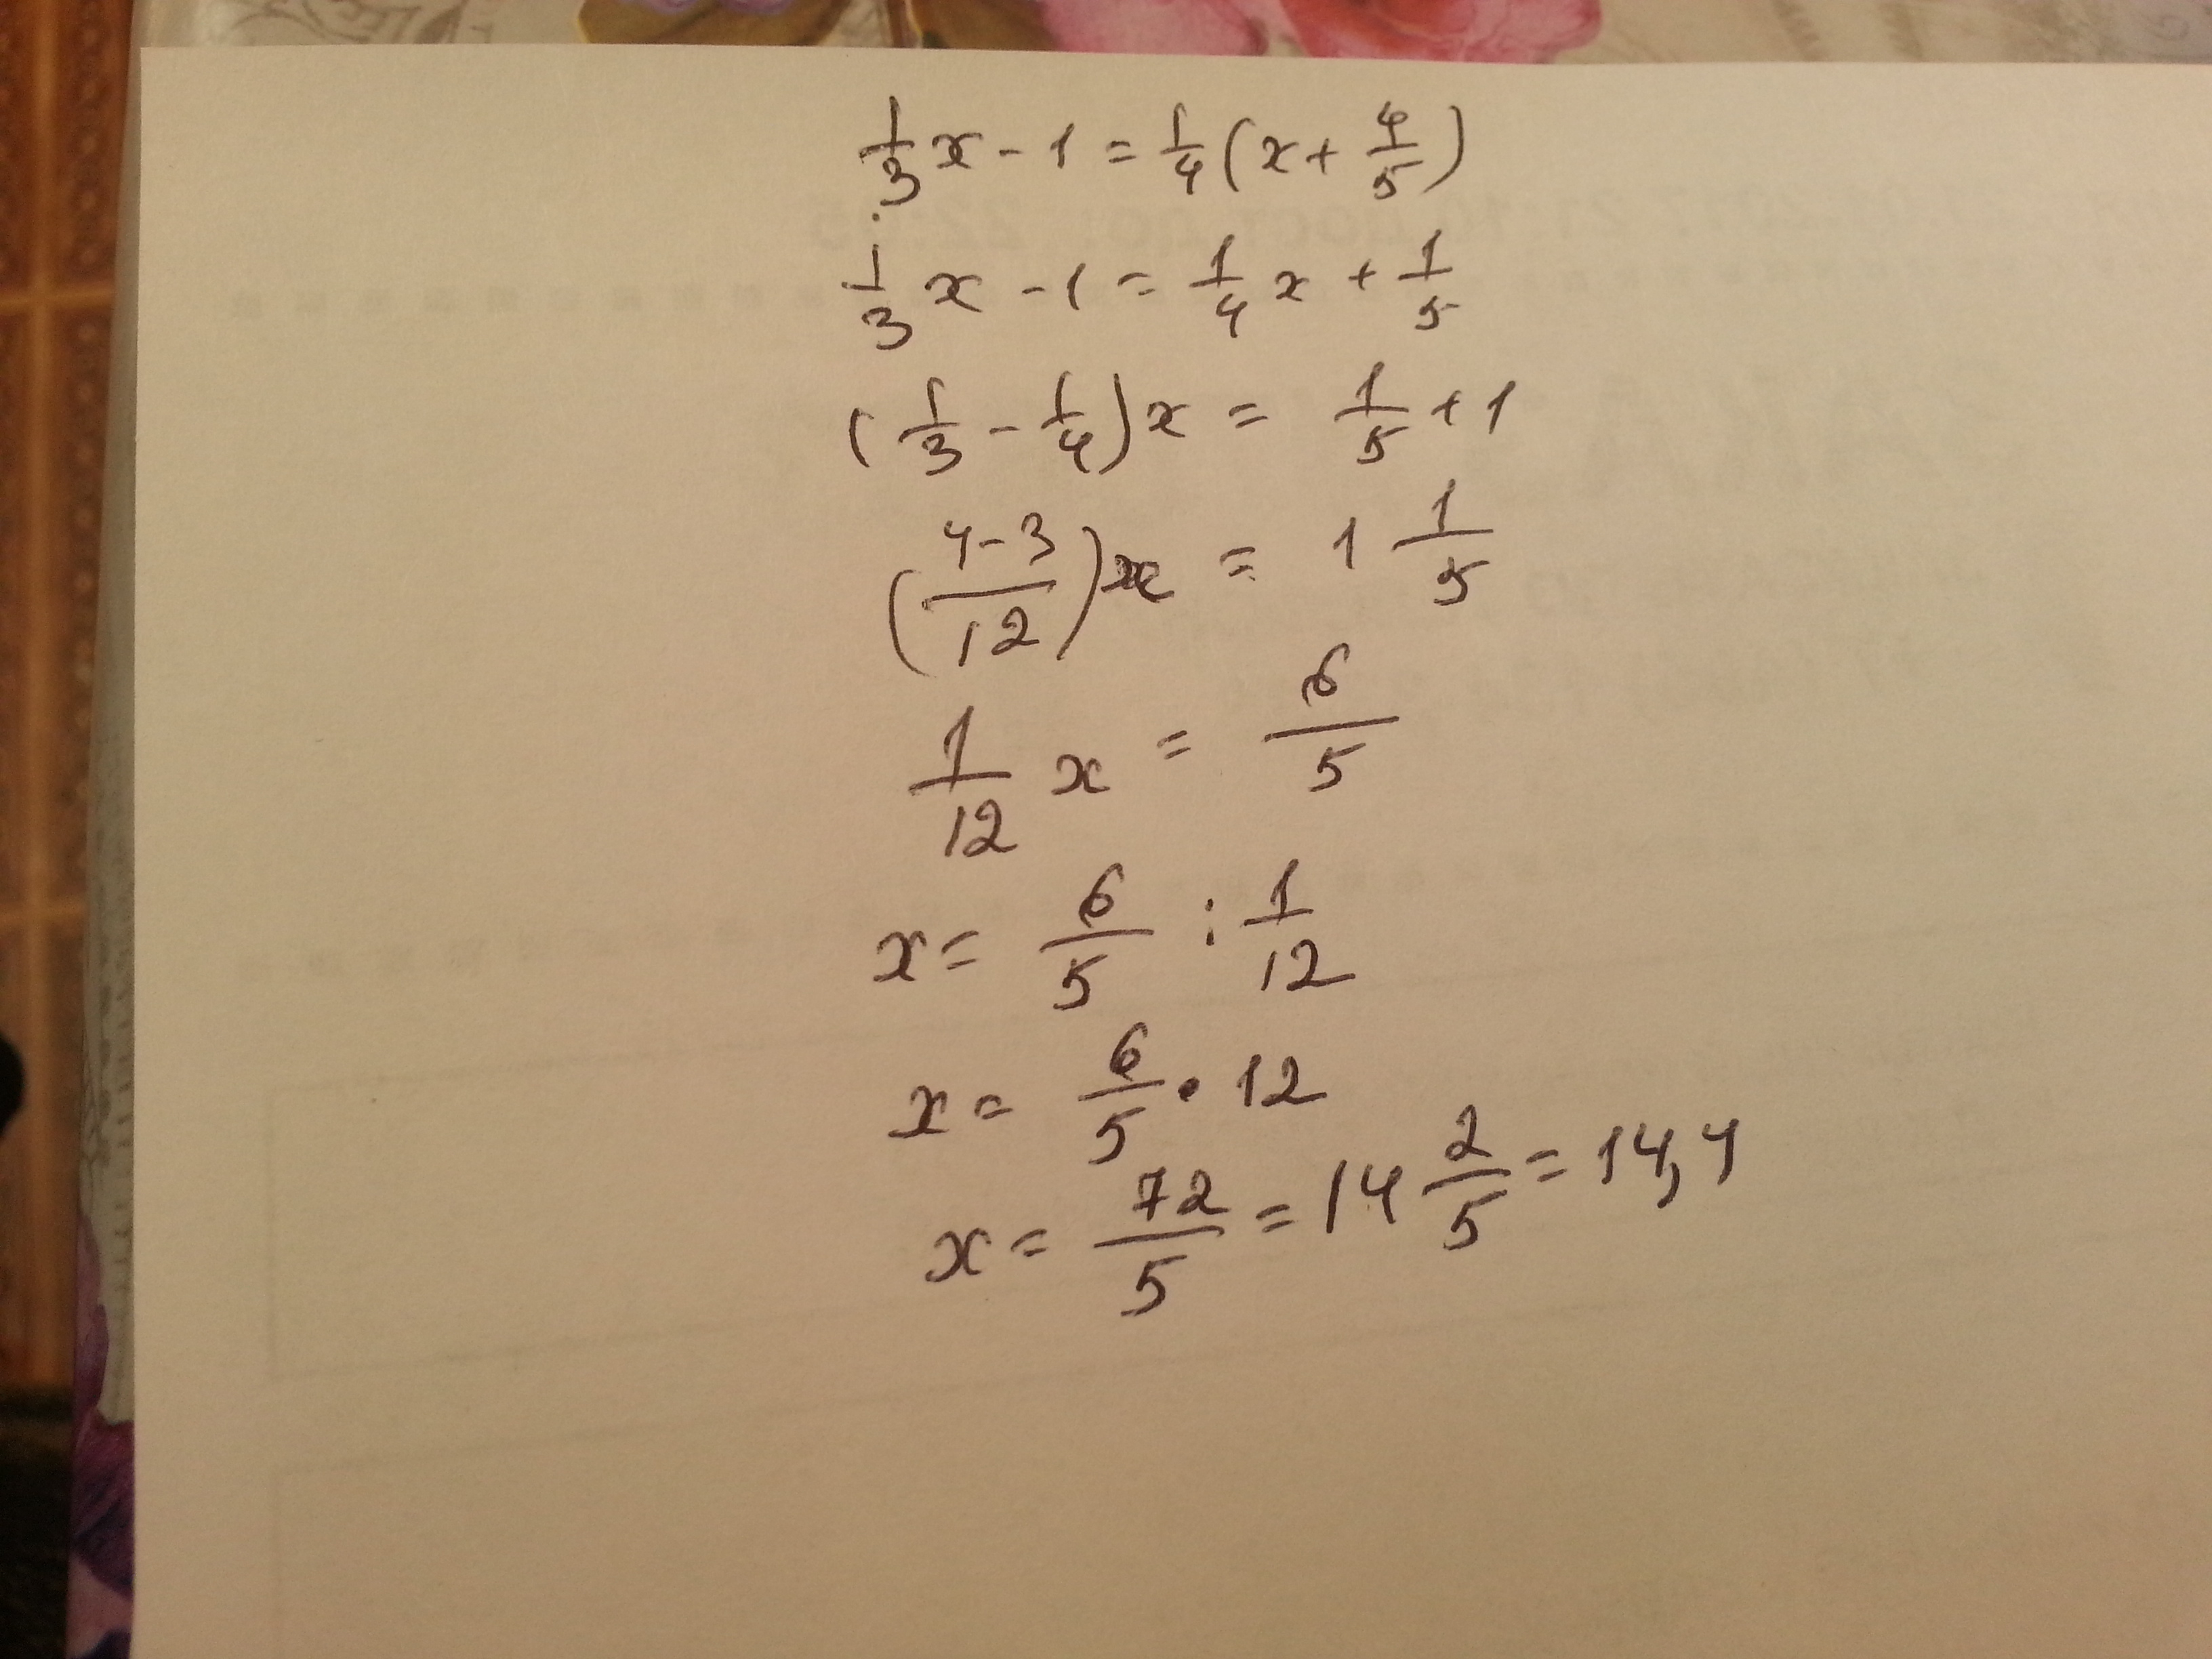 1/3 x - 1 = 1/4 (x + 4/5)
1/3 x - 1 = 1/4 x + 1/5
(1/3 - 1/4) x = 1/5 + 1
((4-3)/12) x = 1 1/5
1/12 x = 6/5
x = 6/5 : 1/12
x = 6/5 · 12
x = 72/5 = 14 2/5 = 14,4